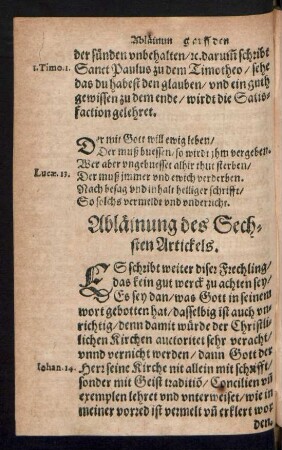 Abläinun g auff den
der sünden vnbehalten/ꝛc.darum̃ schribt
1.Timo.1. Sanct Paulus zu dem Timotheo/ sehe
das du habest den glauben/ vnd ein guth
gewissen zu dem ende/ wirdt die Satis-
faction gelehret.
Der mit Gott will ewig leben/
Der muß buessen/so wirdt jhm vergeben.
Wer aber vngebuesset alhir thut sterben/
Lucæ. 13. Der muß immer vnd ewich verderben.
Nach besag vnd inhalt heiliger schrifft/
So solchs vermeldt vnd vnderricht.
Abläjnung des Sech-
sten Artickels.
ES schribt weiter diser Frechling/
das kein gut werck zu achten sey/
Es sey dan/was Gott in seinem
wort gebotten hat/dasselbig ist auch vn-
richtig/denn damit würde der Christli-
lichen Kirchen auctoritet sehr veracht/
vnnd vernicht werden/ dann Gott der
Iohan.14. Herr seine Kirche nit allein mit schrifft/
sonder mit Geist traditiō/ Concilien vñ
exemplen lehret vnd vnterweiset/ wie in
meiner vorred ist vermelt vñ erklert wor
den.